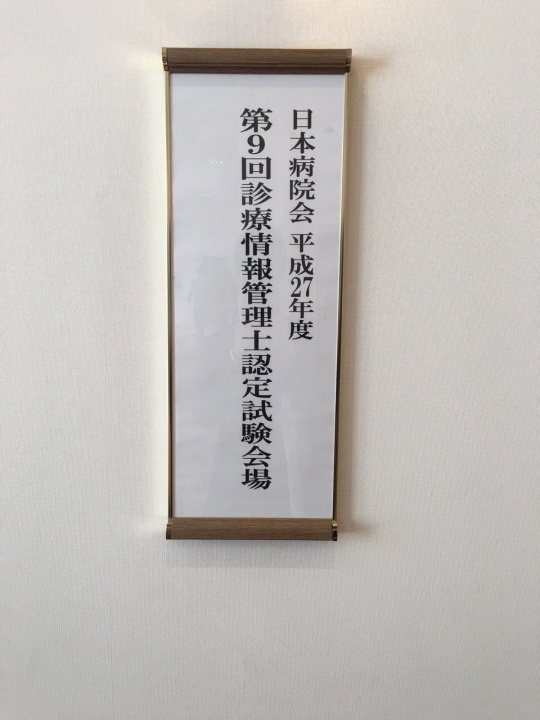 日本病院会 平成27年度
第9回診療情報管理士認定試験会場